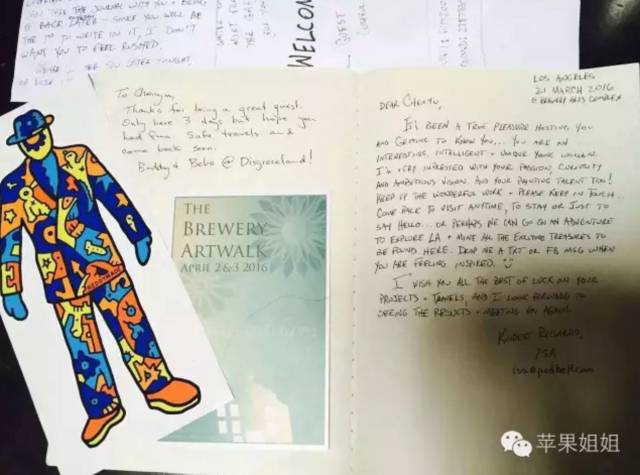 YOU TAKE THE JOURNAL WITH YOU & BRING
IT BACK LATER - SINCE YOU WILL BE
THE 1ST TO WRITE IN IT, I DON'T
WANT YOU TO FEEL RUSHED.
WELCOM
GUEST
To Chenyu,
Thanks for being a great guest.
Only here 3 days but hope you
had fun. Safe travels and
come back soon.
Buddy & Bebo @ Disgraceland!
THE
BREWERY
ARTWALK
APRIL 2 & 3 2016
LOS ANGELES
21 MARCH 2016
@ BREWERY ARTS COMPLEX
DEAR CHENYU,
IT'S BEEN A TRUE PLEASURE HOSTING YOU
AND GETTING TO KNOW YOU... YOU ARE AN
INTERESTING, INTELLIGENT + UNIQUE YOUNG WOMAN.
I'M IMPRESSED WITH YOUR PASSION, CURIOSITY
AND AMBITIOUS VISION. AND YOUR PAINTING TALENT TOO!
KEEP UP THE WONDERFUL WORK + PLEASE KEEP IN TOUCH...
COME BACK TO VISIT ANYTIME, TO STAY OR JUST TO
SAY HELLO... OR PERHAPS WE CAN GO ON AN ADVENTURE
TO EXPLORE LA + MINE ALL THE EXCITING TREASURES TO
BE FOUND HERE. DROP ME A TXT OR FB MSG WHEN
YOU ARE FEELING INSPIRED.
I WISH YOU ALL THE BEST OF LUCK ON YOUR
PROJECTS + TRAVELS, AND I LOOK FORWARD TO
SEEING THE RESULTS + MEETING YOU AGAIN.
KINDEST REGARDS,
ISA
苹果姐姐